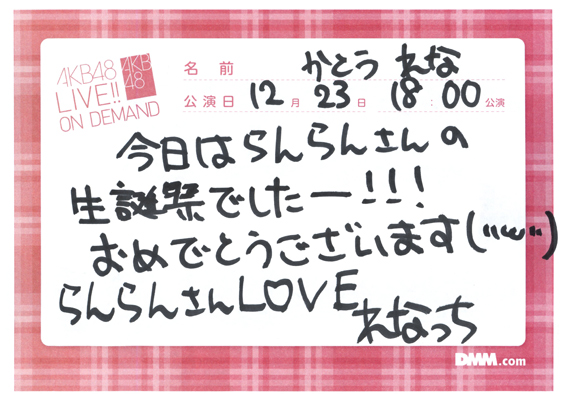 AKB48
LIVE!!
ON DEMAND
AKB
48
名前 かとう れな
公演日 12月 23日 18:00公演
今日はらんらんさんの
生誕祭でしたー!!!
おめでとうございます("ω")
らんらんさんLOVE
れなっち
DMM.com